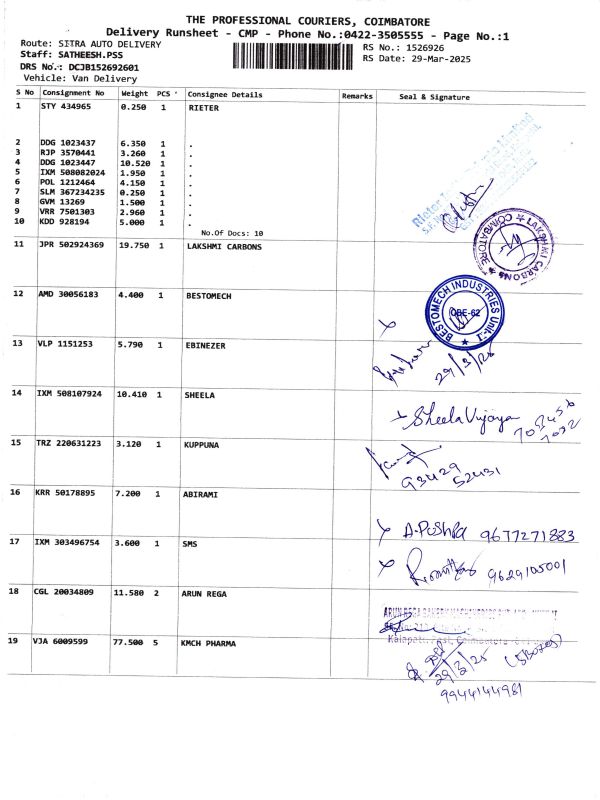 THE PROFESSIONAL COURIERS, COIMBATORE
Delivery Runsheet - CMP - Phone No.:0422-3505555 - Page No.:1
Route: SITRA AUTO DELIVERY
RS No.: 1526926
Staff: SATHEESH.PSS
RS Date: 29-Mar-2025
DRS No.: DCJB152692601
Vehicle: Van Delivery
S No Consignment No Weight PCS Consignee Details Remarks Seal & Signature
1 STY 434965 0.250 1 RIETER
2 DDG 1023437 6.350 1 .
3 RJP 3570441 3.260 1 .
4 DDG 1023447 10.520 1 .
5 IXM 508082024 1.950 1 .
6 POL 1212464 4.150 1 .
7 SLM 367234235 0.250 1 .
8 GVM 13269 1.500 1 .
9 VRR 7501303 2.960 1 .
10 KDD 928194 5.000 1 .
No.Of Docs: 10
11 JPR 502924369 19.750 1 LAKSHMI CARBONS
LAKSHMI CARBONS ★ COIMBATORE ★
12 AMD 30056183 4.400 1 BESTOMECH
BESTOMECH INDUSTRIES Unit-I ★
CBE-62
13 VLP 1151253 5.790 1 EBINEZER
29/3/25
14 IXM 508107924 10.410 1 SHEELA
Sheela Vijaya
15 TRZ 220631223 3.120 1 KUPPUNA
93429
52431
16 KRR 50178895 7.200 1 ABIRAMI
A.Poshka 9677271883
17 IXM 303496754 3.600 1 SMS
9629105001
18 CGL 20034809 11.580 2 ARUN REGA
19 VJA 6009599 77.500 5 KMCH PHARMA
29/3/25 (5Boxes)
9944144981